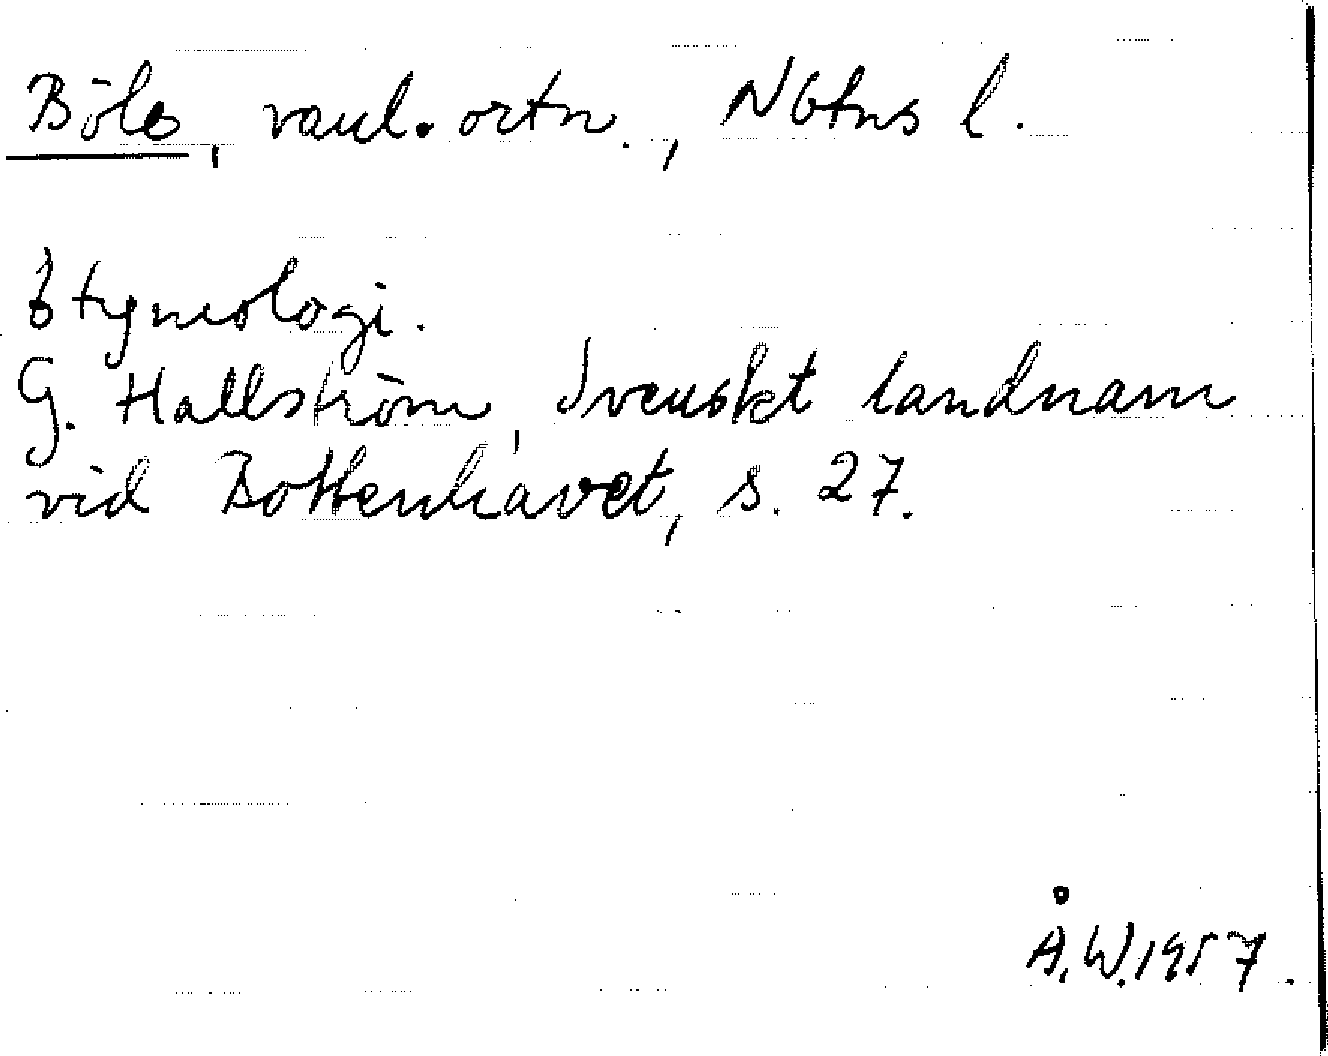 Böle, vanl. ortn., Nbtns l.
Etymologi.
G. Hallström, Svenskt landnam
vid Bottenhavet, s. 27.
Å.W.1957.